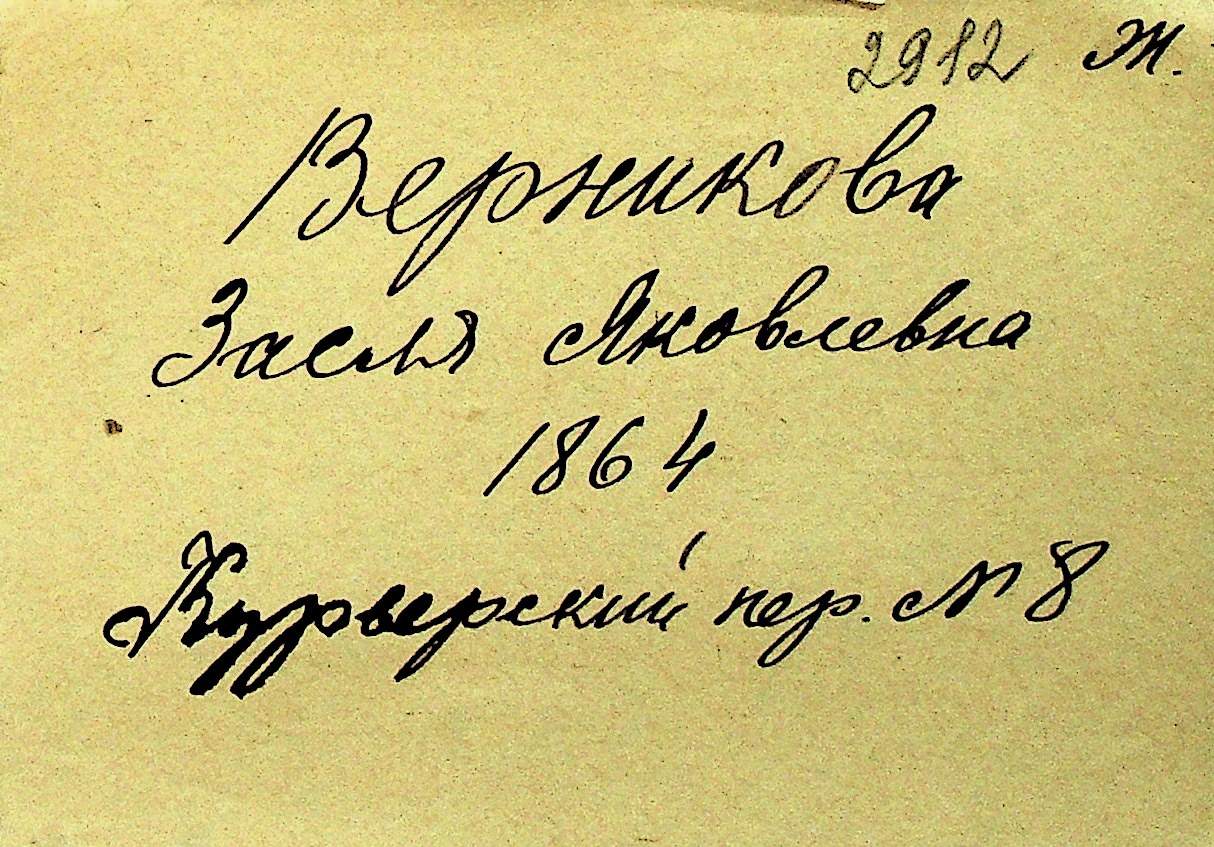 2912 Ж.
Верникова
Засля Яковлевна
1864
Курьерский пер. № 8